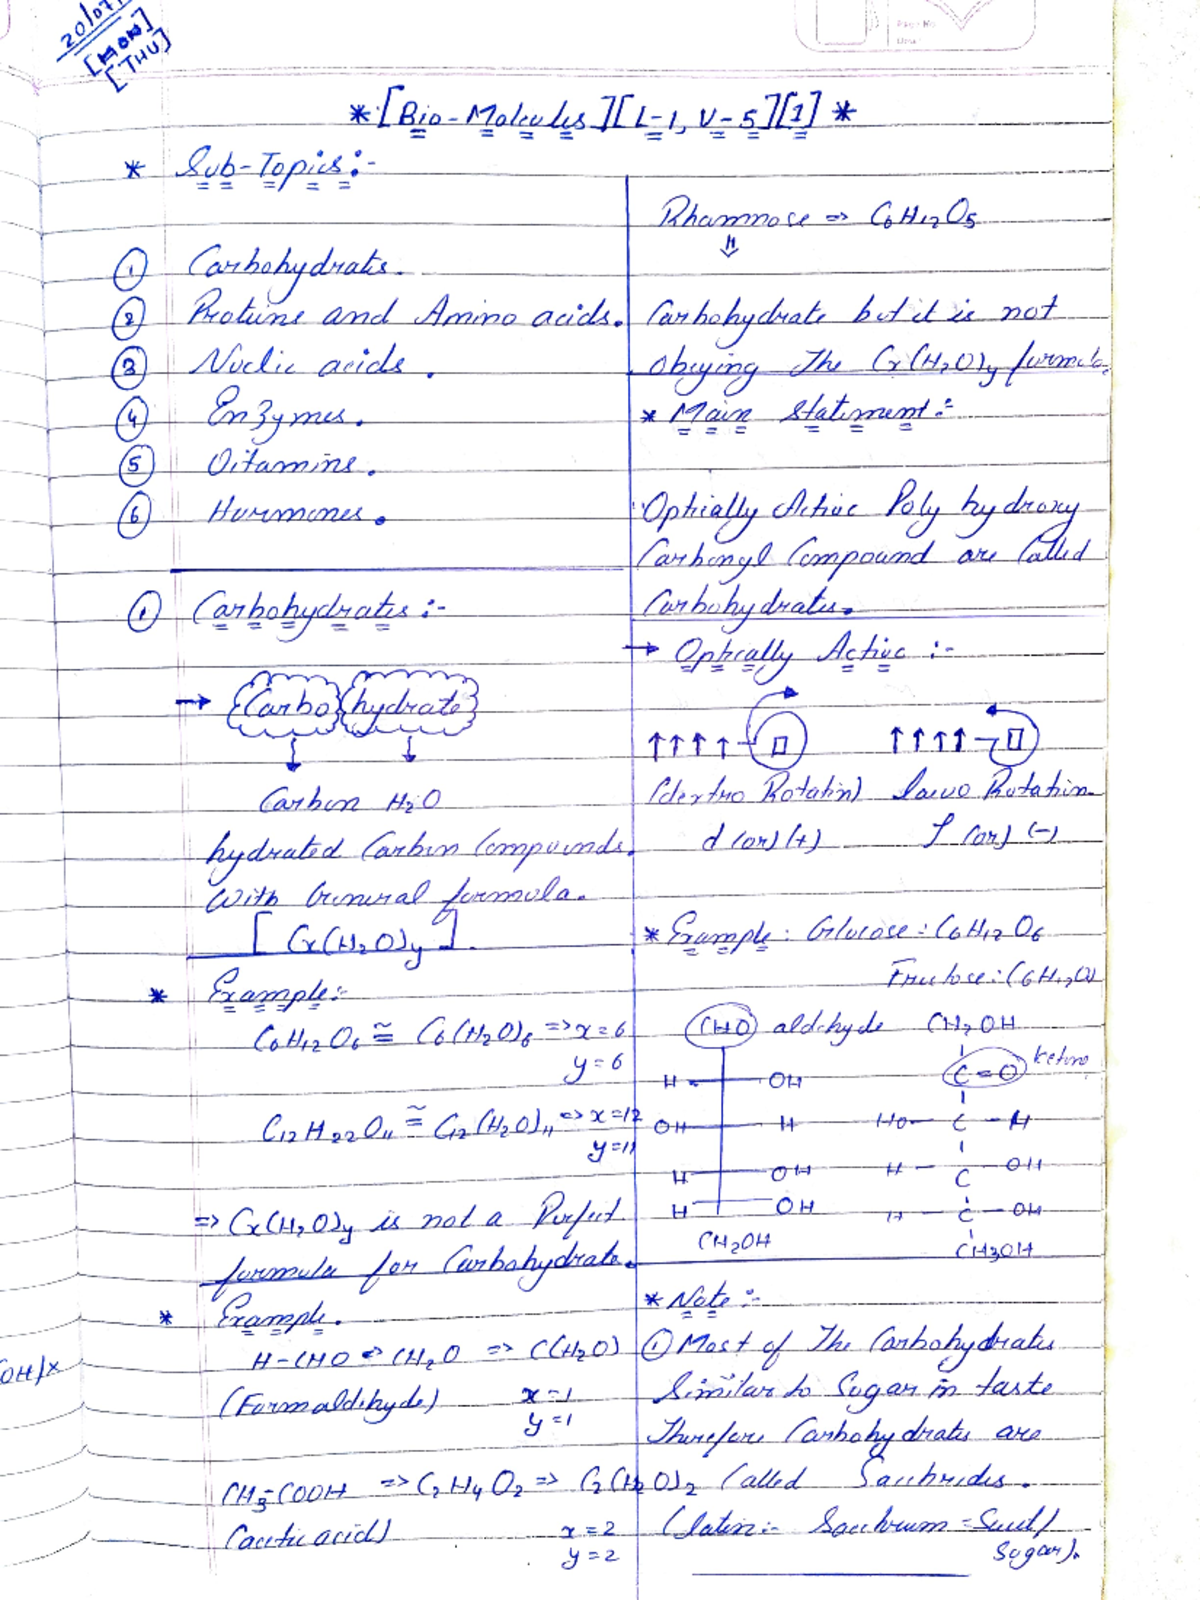 20/07/
[MON]
[THU]
Page No
* [Bio-Molecules][L-1, V-5][1] *
* Sub-Topics:-
① Carbohydrates.
② Proteins and Amino acids.
③ Nuclic acids.
④ Enzymes.
⑤ Vitamins.
⑥ Hormones.
① Carbohydrates :-
→ Carbo hydrate
Carbon H₂O
hydrated Carbon Compounds.
With General formula.
[ Cx(H₂O)y ].
* Example:-
C₆H₁₂O₆ ≅ C₆(H₂O)₆ => x=6
y=6
C₁₂H₂₂O₁₁ ≅ C₁₂(H₂O)₁₁ => x=12
y=11
=> Cx(H₂O)y is not a Perfect
formula for Carbohydrate.
* Example.
H-CHO => CH₂O => C(H₂O)
(Formaldehyde) x=1
y=1
CH₃-COOH => C₂H₄O₂ => C₂(H₂O)₂
(acetic acid) x=2
y=2
OH/x
Rhamnose => C₆H₁₂O₅
⇓
Carbohydrate but it is not
obeying The Cx(H₂O)y formula.
* Main Statement:-
Optically Active Poly hydroxy
Carbonyl Compound are Called
Carbohydrates.
→ Optically Active :-
↑↑↑↑ ↑↑↑↑
(dextro Rotatin) Laevo Rotation
d (or) (+) l (or) (-)
* Example: Glucose: C₆H₁₂O₆
Fructose: C₆H₁₂O₆
CHO aldehyde CH₂OH
C=O ketone
H OH
OH H HO- C -H
H OH H - C - OH
H OH H - C - OH
CH₂OH CH3OH
* Note :-
① Most of The Carbohydrates
Similar to Sugar in taste
Therefore Carbohydrates are
Called Saccharides.
(Latin:- Saccharum = Sweet/
Sugar).